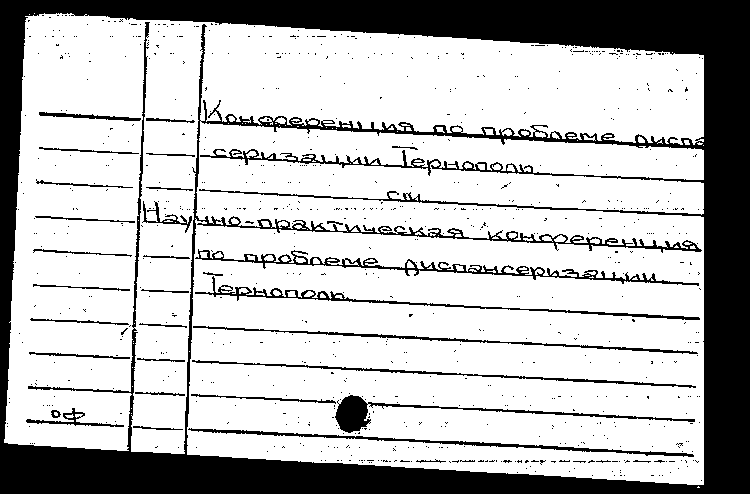 Конференция по проблеме диспа
серизации. Тернополь.
см.
Научно-практическая конференция
по проблеме диспансеризации.
Тернополь.
оф